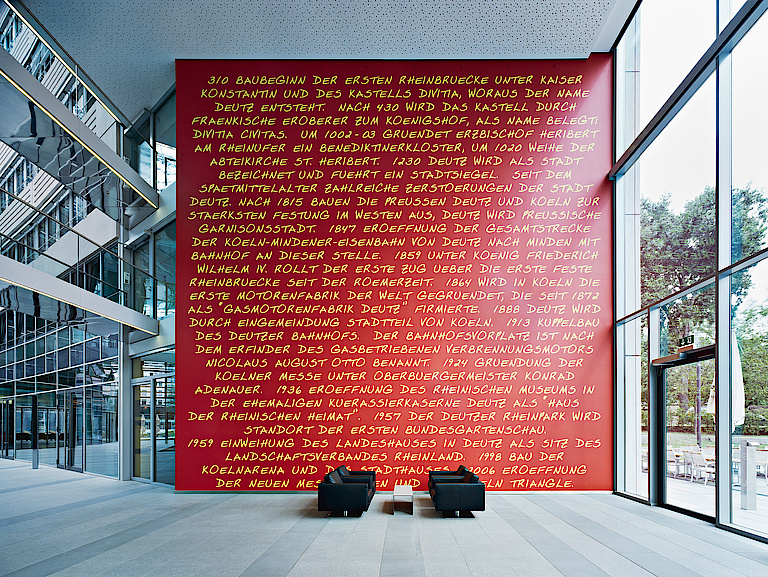 310 BAUBEGINN DER ERSTEN RHEINBRUECKE UNTER KAISER
KONSTANTIN UND DES KASTELLS DIVITIA, WORAUS DER NAME
DEUTZ ENTSTEHT. NACH 430 WIRD DAS KASTELL DURCH
FRAENKISCHE EROBERER ZUM KOENIGSHOF, ALS NAME BELEGT:
DIVITIA CIVITAS. UM 1002-03 GRUENDET ERZBISCHOF HERIBERT
AM RHEINUFER EIN BENEDIKTINERKLOSTER, UM 1020 WEIHE DER
ABTEIKIRCHE ST. HERIBERT. 1230 DEUTZ WIRD ALS STADT
BEZEICHNET UND FUEHRT EIN STADTSIEGEL. SEIT DEM
SPAETMITTELALTER ZAHLREICHE ZERSTOERUNGEN DER STADT
DEUTZ. NACH 1815 BAUEN DIE PREUSSEN DEUTZ UND KOELN ZUR
STAERKSTEN FESTUNG IM WESTEN AUS, DEUTZ WIRD PREUSSISCHE
GARNISONSSTADT. 1847 EROEFFNUNG DER GESAMTSTRECKE
DER KOELN-MINDENER-EISENBAHN VON DEUTZ NACH MINDEN MIT
BAHNHOF AN DIESER STELLE. 1859 UNTER KOENIG FRIEDERICH
WILHELM IV. ROLLT DER ERSTE ZUG UEBER DIE ERSTE FESTE
RHEINBRUECKE SEIT DER ROEMERZEIT. 1864 WIRD IN KOELN DIE
ERSTE MOTORENFABRIK DER WELT GEGRUENDET, DIE SEIT 1872
ALS "GASMOTORENFABRIK DEUTZ" FIRMIERTE. 1888 DEUTZ WIRD
DURCH EINGEMEINDUNG STADTTEIL VON KOELN. 1913 KUPPELBAU
DES DEUTZER BAHNHOFS. DER BAHNHOFSVORPLATZ IST NACH
DEM ERFINDER DES GASBETRIEBENEN VERBRENNUNGSMOTORS
NICOLAUS AUGUST OTTO BENANNT. 1924 GRUENDUNG DER
KOELNER MESSE UNTER OBERBUERGERMEISTER KONRAD
ADENAUER. 1936 EROEFFNUNG DES RHEINISCHEN MUSEUMS IN
DER EHEMALIGEN KUERASSIERKASERNE DEUTZ ALS "HAUS
DER RHEINISCHEN HEIMAT". 1957 DER DEUTZER RHEINPARK WIRD
STANDORT DER ERSTEN BUNDESGARTENSCHAU.
1959 EINWEIHUNG DES LANDESHAUSES IN DEUTZ ALS SITZ DES
LANDSCHAFTSVERBANDES RHEINLAND. 1998 BAU DER
KOELNARENA UND STADTHAUSES. 2006 EROEFFNUNG
DER NEUEN UND TRIANGLE.